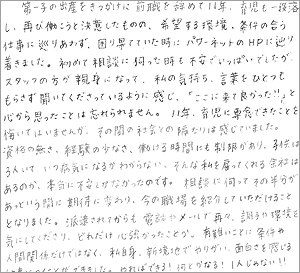 第一子の出産をきっかけに前職を辞めて11年、育児も一段落
し、再び働こうと決意したものの、希望する環境・条件の合う
仕事に巡りあわず、困り果てていた時にパワーネットのHPに辿り
着きました。初めて相談に伺った時も不安でいっぱいでしたが、
スタッフの方が親身になって、私の気持ち、言葉をひとつも
もらさず聞いてくださっているように感じ、「ここに来て良かった!!」と
心から思ったことは忘れられません。11年、育児に専念できたことを
悔いてはいませんが、その間の社会との隔たりは感じていました。
資格の無さ、経験の少なさ、働ける時間にも制限があり、子供は
3人いて、いつ病気になるかわからない、そんな私を雇ってくれる会社は
あるのか、本当に不安しかなかったのです。相談に伺ってその半分が
あっという間に期待に変わり、今の職場を紹介していただけること
となりました。派遣されてからも電話やメールで再々、調子や環境を
気にしてくださり、どれだけ心強かったことか。有難いことに条件や
人間関係だけではなく、私自身、新境地でやりがい、面白さを感じる
ことができました。やればできる!何とかなる!1人じゃない!!